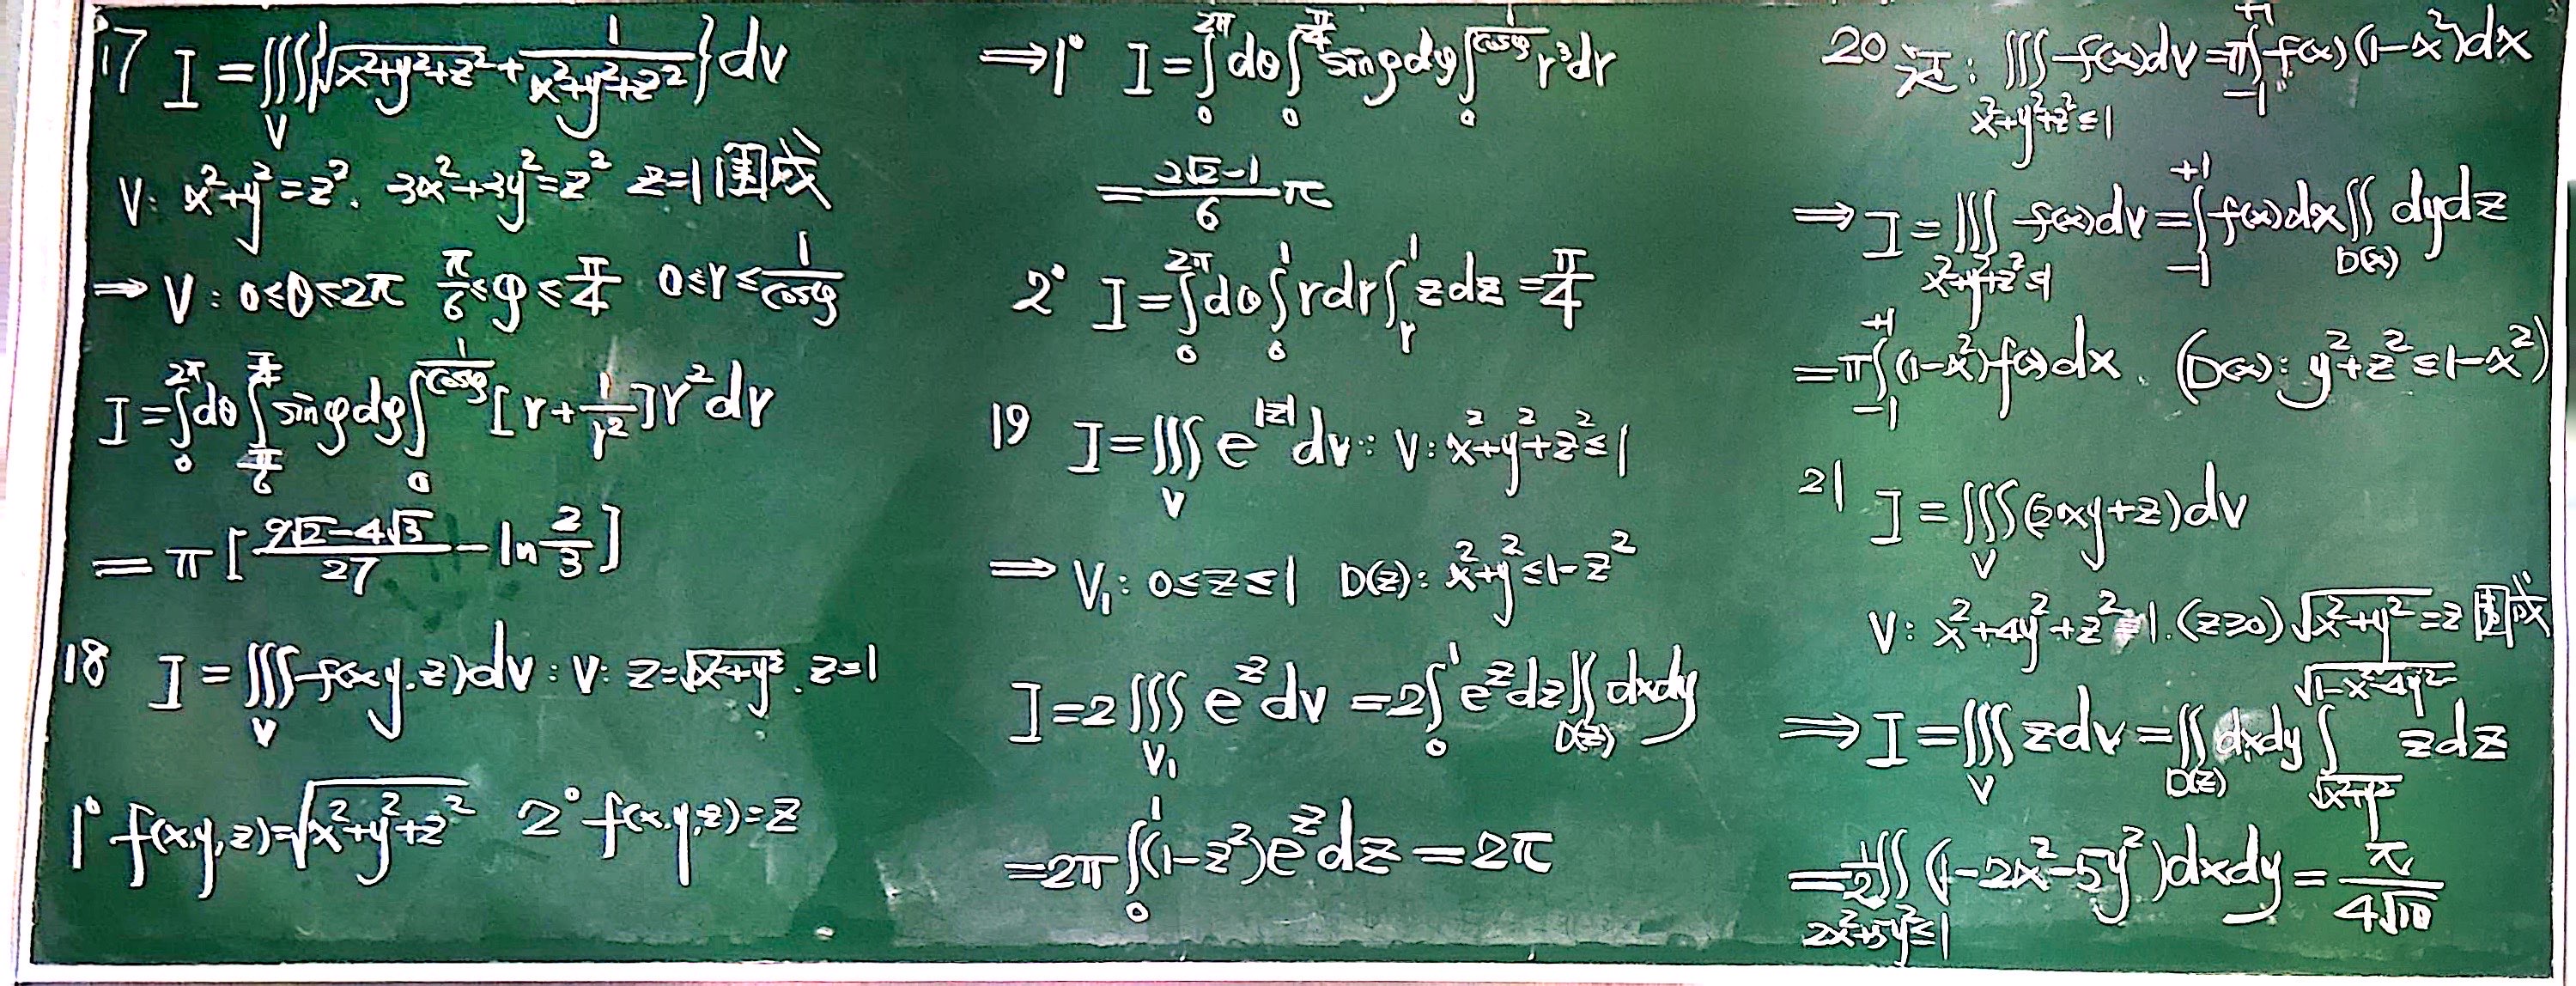 17 I = ∭_V {√(x²+y²+z²) + 1/(x²+y²+z²)} dv
V: x²+y²=z². 3x²+3y²=z² z=1 围成
⇒ V: 0≤θ≤2π π/6≤φ≤π/4 0≤r≤1/cosφ
I = ∫_0^{2π} dθ ∫_{π/6}^{π/4} sinφdφ ∫_0^{1/cosφ} [r + 1/r²] r² dr
= π [ (9√2-4√3)/27 - ln 2/3 ]
18 I = ∭_V f(x,y,z)dv : V: z=√(x²+y²). z=1
1° f(x,y,z)=√(x²+y²+z²) 2° f(x,y,z)=z
⇒1° I = ∫_0^{2π} dθ ∫_0^{π/4} sinφdφ ∫_0^{1/cosφ} r³dr
= (2√2-1)/6 π
2° I = ∫_0^{2π} dθ ∫_0^1 rdr ∫_r^1 zdz = π/4
19 I = ∭_V e^{|z|} dv : V: x²+y²+z²≤1
⇒ V₁: 0≤z≤1 D(z): x²+y²≤1-z²
I=2∭_{V₁} e^z dv = 2∫_0^1 e^z dz ∬_{D(z)} dxdy
=2π ∫_0^1 (1-z²)e^z dz = 2π
20 证: ∭_{x²+y²+z²≤1} f(x)dv = π∫_{-1}^{+1} f(x)(1-x²)dx
⇒ I = ∭_{x²+y²+z²≤1} f(x)dv = ∫_{-1}^{+1} f(x)dx ∬_{D(x)} dydz
= π∫_{-1}^{+1} (1-x²)f(x)dx. (D(x): y²+z²≤1-x²)
21 I = ∭_V (2xy+z)dv
V: x²+4y²+z²=1. (z≥0) √(x²+y²)=z 围成
⇒ I = ∭_V zdv = ∬_{D(z)} dxdy ∫_{√(x²+y²)}^{√(1-x²-4y²)} zdz
= 1/2 ∬_{2x²+5y²≤1} (1-2x²-5y²)dxdy = π/(4√10)